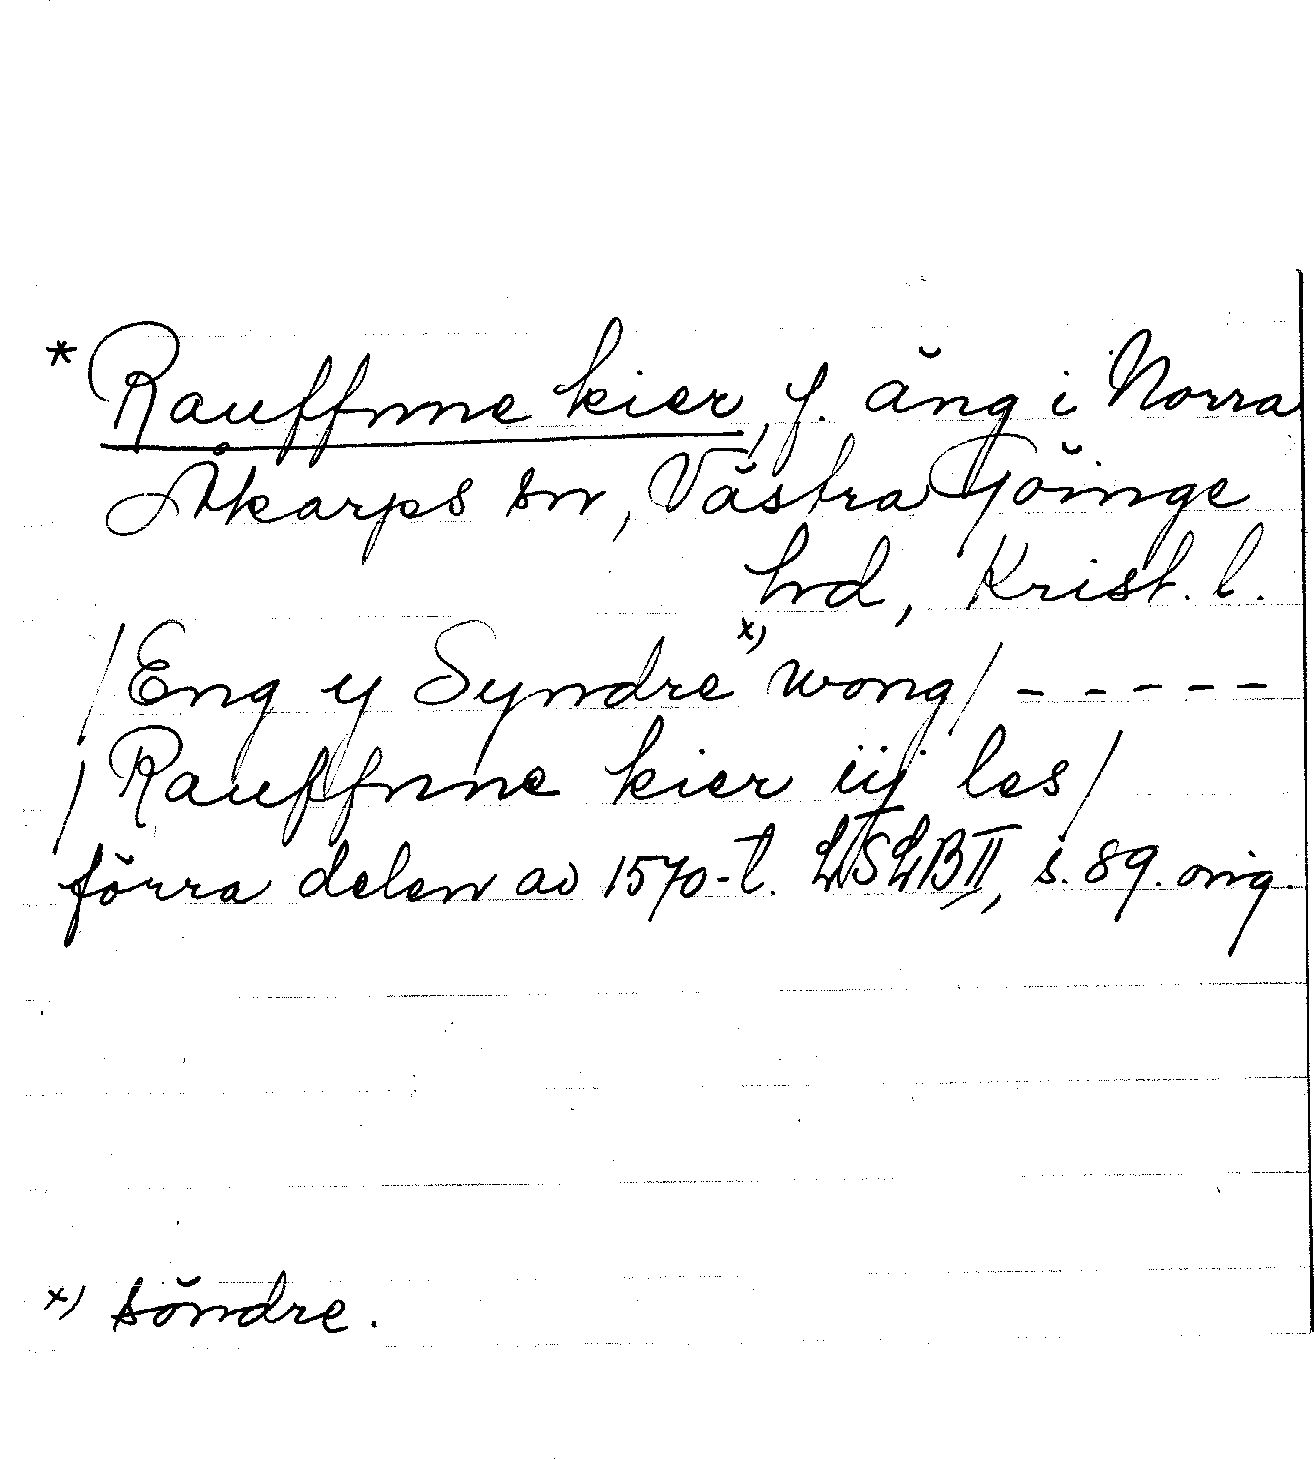 * Rauffnne kier, f. äng i Norra
Åkarps sn, Västra Göinge
hd, Krist. l.
/Eng y Syndre x) wong/ - - - - -
/Rauffnne kier iij les/
förra delen av 1570-t. LTSLB II, s. 89. orig.
x) söndre.